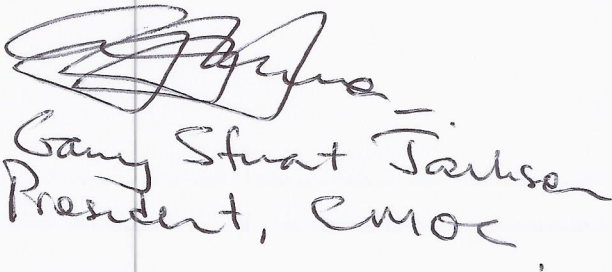 Gary Stuart Jackson
President, CMOC